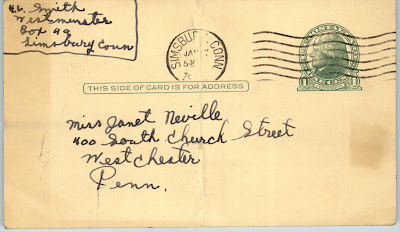 Smith
Westminster
Box 99
Simsbury Conn
SIMSBURY, CONN.
THIS SIDE OF CARD IS FOR ADDRESS
Miss Janet Neville
400 South Church Street
West Chester
Penn.